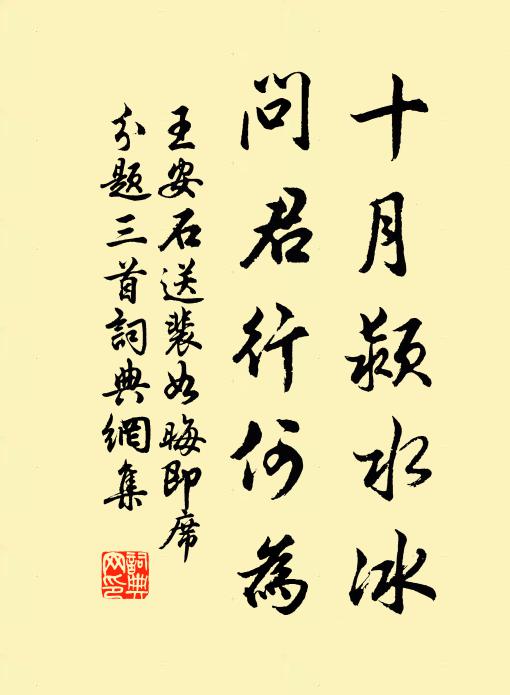 十月颍水冰
問君行何為
王安石送裴如晦即席
分題三首詞典網集
詞典網印